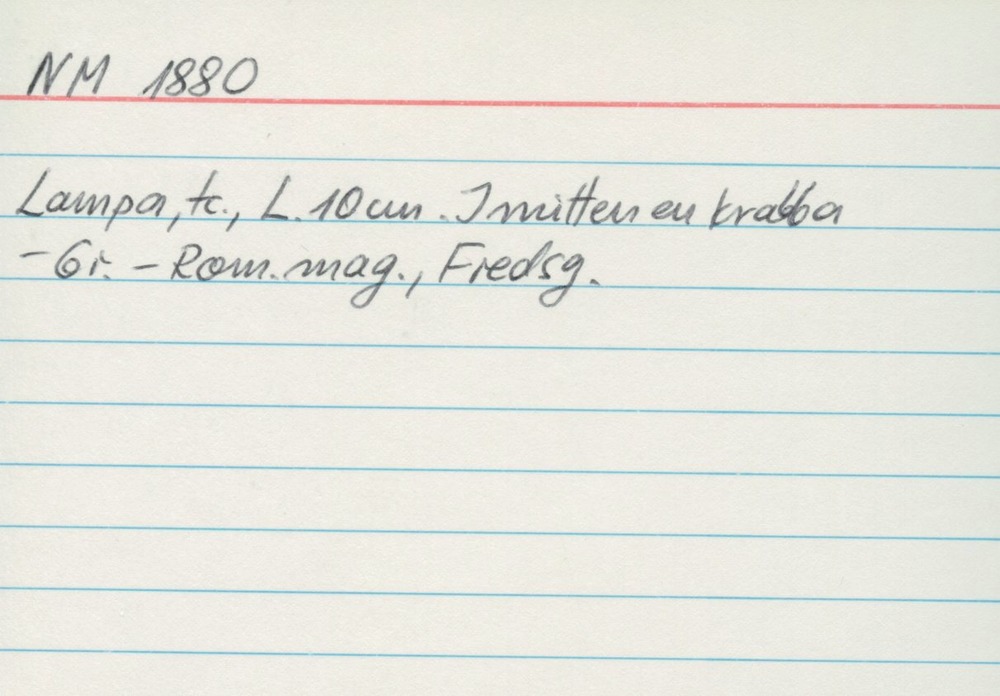 NM 1880
Lampa, tc., L. 10 cm. I mitten en krabba
- Gr. - Rom. mag., Fredsg.